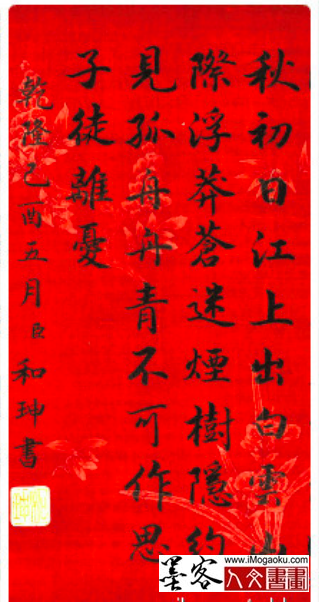 秋初日江上出白雲山
際浮莽蒼迷煙樹隱約
見孤舟丹青不可作思
子徒離憂
乾隆己酉五月臣和珅書
墨客
www.iMogaoku.com
人文書畫